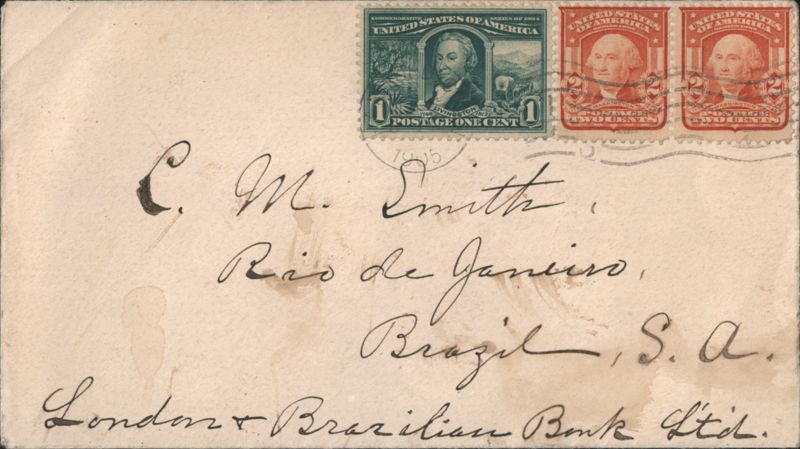 COMMEMORATIVE SERIES OF 1904
UNITED STATES OF AMERICA
1 LIVINGSTON 1
POSTAGE ONE CENT
UNITED STATES OF AMERICA
2 2
POSTAGE
TWO CENTS
UNITED STATES OF AMERICA
2 2
POSTAGE
TWO CENTS
1905
C. M. Smith,
Rio de Janeiro,
Brazil, S. A.
London & Brazilian Bank Ltd.